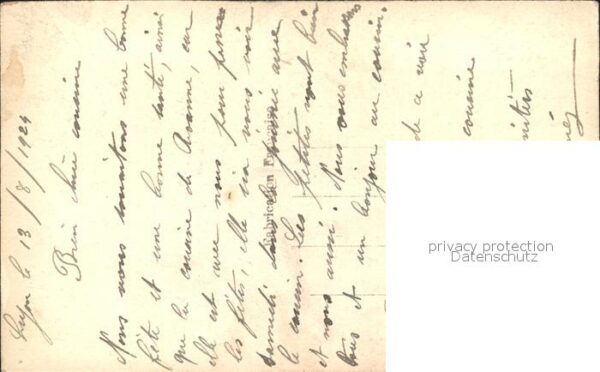 Lyon le 13/8/1929
Bien chère cousine
Nous nous souhaitons une bonne
fête et une bonne santé, ainsi
que la cousine de Roanne, car
elle est avec nous pour passer
les fêtes, elle ira vous voir
samedi dans la journée avec
le cousin. Les petites vont bien
et nous aussi. Nous vous embrassons
tous et un bonjour au cousin.
de ce
cousine
Fabrication Française
privacy protection
Datenschutz